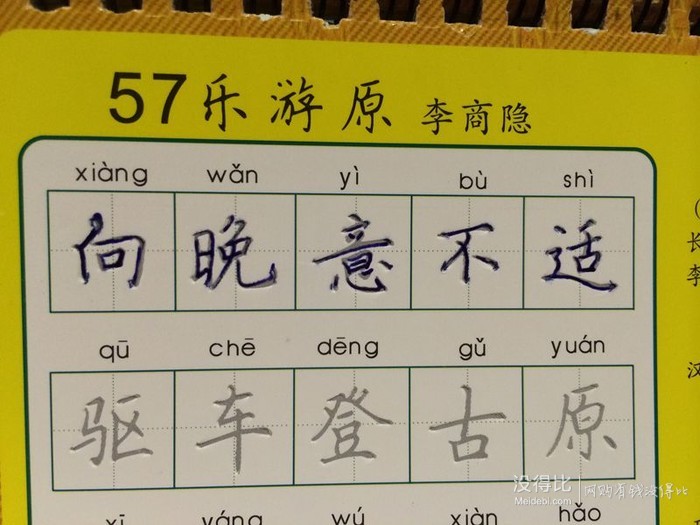 57乐游原 李商隐
xiàng wǎn yì bù shì
向晚意不适
qū chē dēng gǔ yuán
驱车登古原
xī yáng wú xiàn hǎo
(
长
李
汉
没得比 网购省钱没得比
Meidebi.com